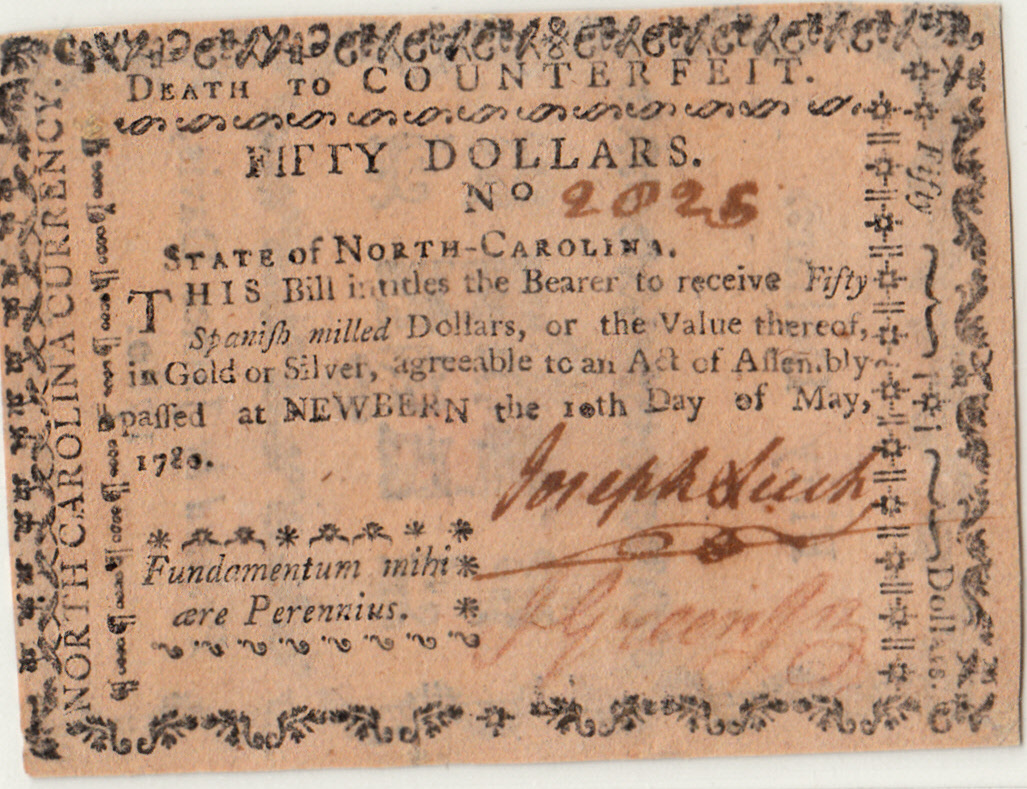 DEATH TO COUNTERFEIT.
FIFTY DOLLARS.
No 2028
STATE of NORTH-CAROLINA.
THIS Bill intitles the Bearer to receive Fifty
Spaniſh milled Dollars, or the Value thereof,
in Gold or Silver, agreeable to an Act of Aſſembly
paſſed at NEWBERN the 10th Day of May,
1780.
Joseph
Fundamentum mihi
ære Perennius.
NORTH CAROLINA CURRENCY.
Fifty Dollars.